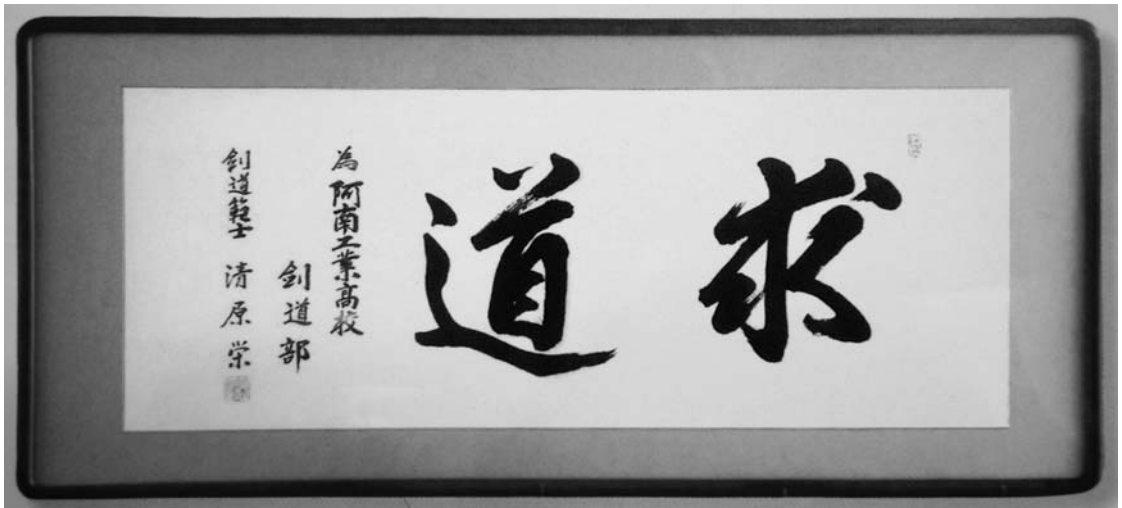 求道
為阿南工業高校
剣道部
剣道範士 清原栄